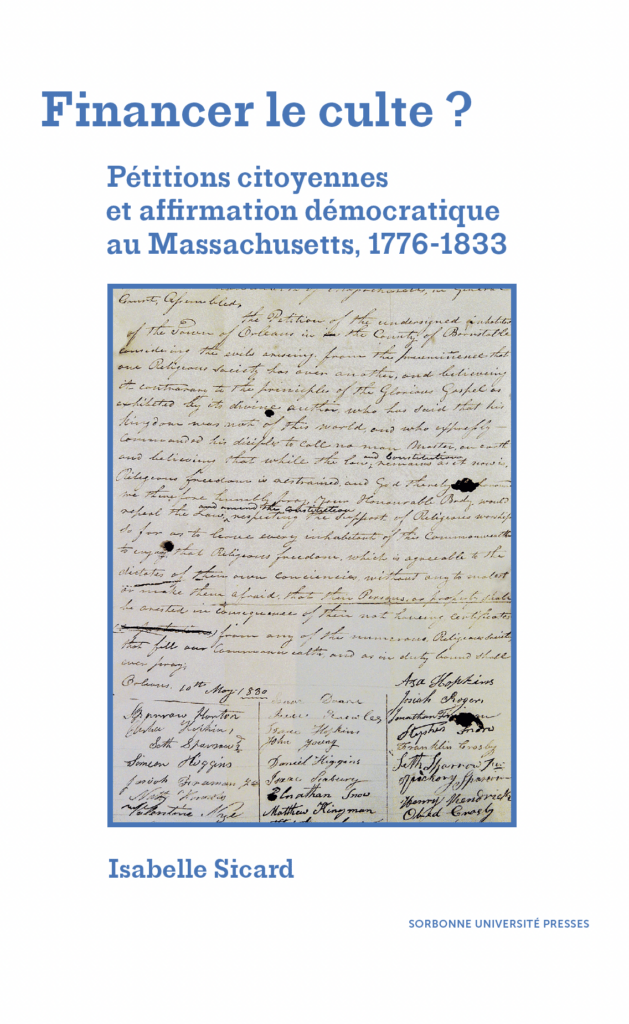 Financer le culte ?
Pétitions citoyennes
et affirmation démocratique
au Massachusetts, 1776-1833
in General
Court, Assembled,
the Petition of the undersigned inhabitants
of the Town of Orleans in the County of Barnstable
considering the evils arising from the preeminence that
one Religious Society has over another, and believing
it contrary to the principles of the Glorious Gospel as
exhibited by its divine author, who has said that his
kingdom was not of this world, and who expressly
commanded his disciples to call no man Master, on earth
and believing that while the law, and constitution remains as it now is,
Religious freedom is abstrained, and God
we therefore humbly pray Your Honourable Body would
repeal the Law, and amend the constitution respecting the Support of Religious worship
so far as to leave every inhabitent of the Commonwealth
to enjoy that Religious freedom, which is agreeable to the
dictates of their own conciencies without any to molest
or make them afraid; that their Persons, or property shall
be arested in consequence of their not having certificates
from any of the numerous Religious Societies
that fill our Commonwealth, and as in duty bound shall
ever pray,
Orleans, 10th May, 1830
Asa Hopkins
Josiah Rogers
Jonathan
Snow
Franklin Crosby
Seth Sparrow
Sparrow
Henry Kendrick
Obed Crosby
Doane
Knowles
Isaac Hopkins
John Young
Daniel Higgins
Isaac Seabury
Elnathan Snow
Matthew Kingman
Sparrow Horton
Seth Sparrow
Simeon Higgins
Josiah Freeman
Isabelle Sicard
SORBONNE UNIVERSITÉ PRESSES